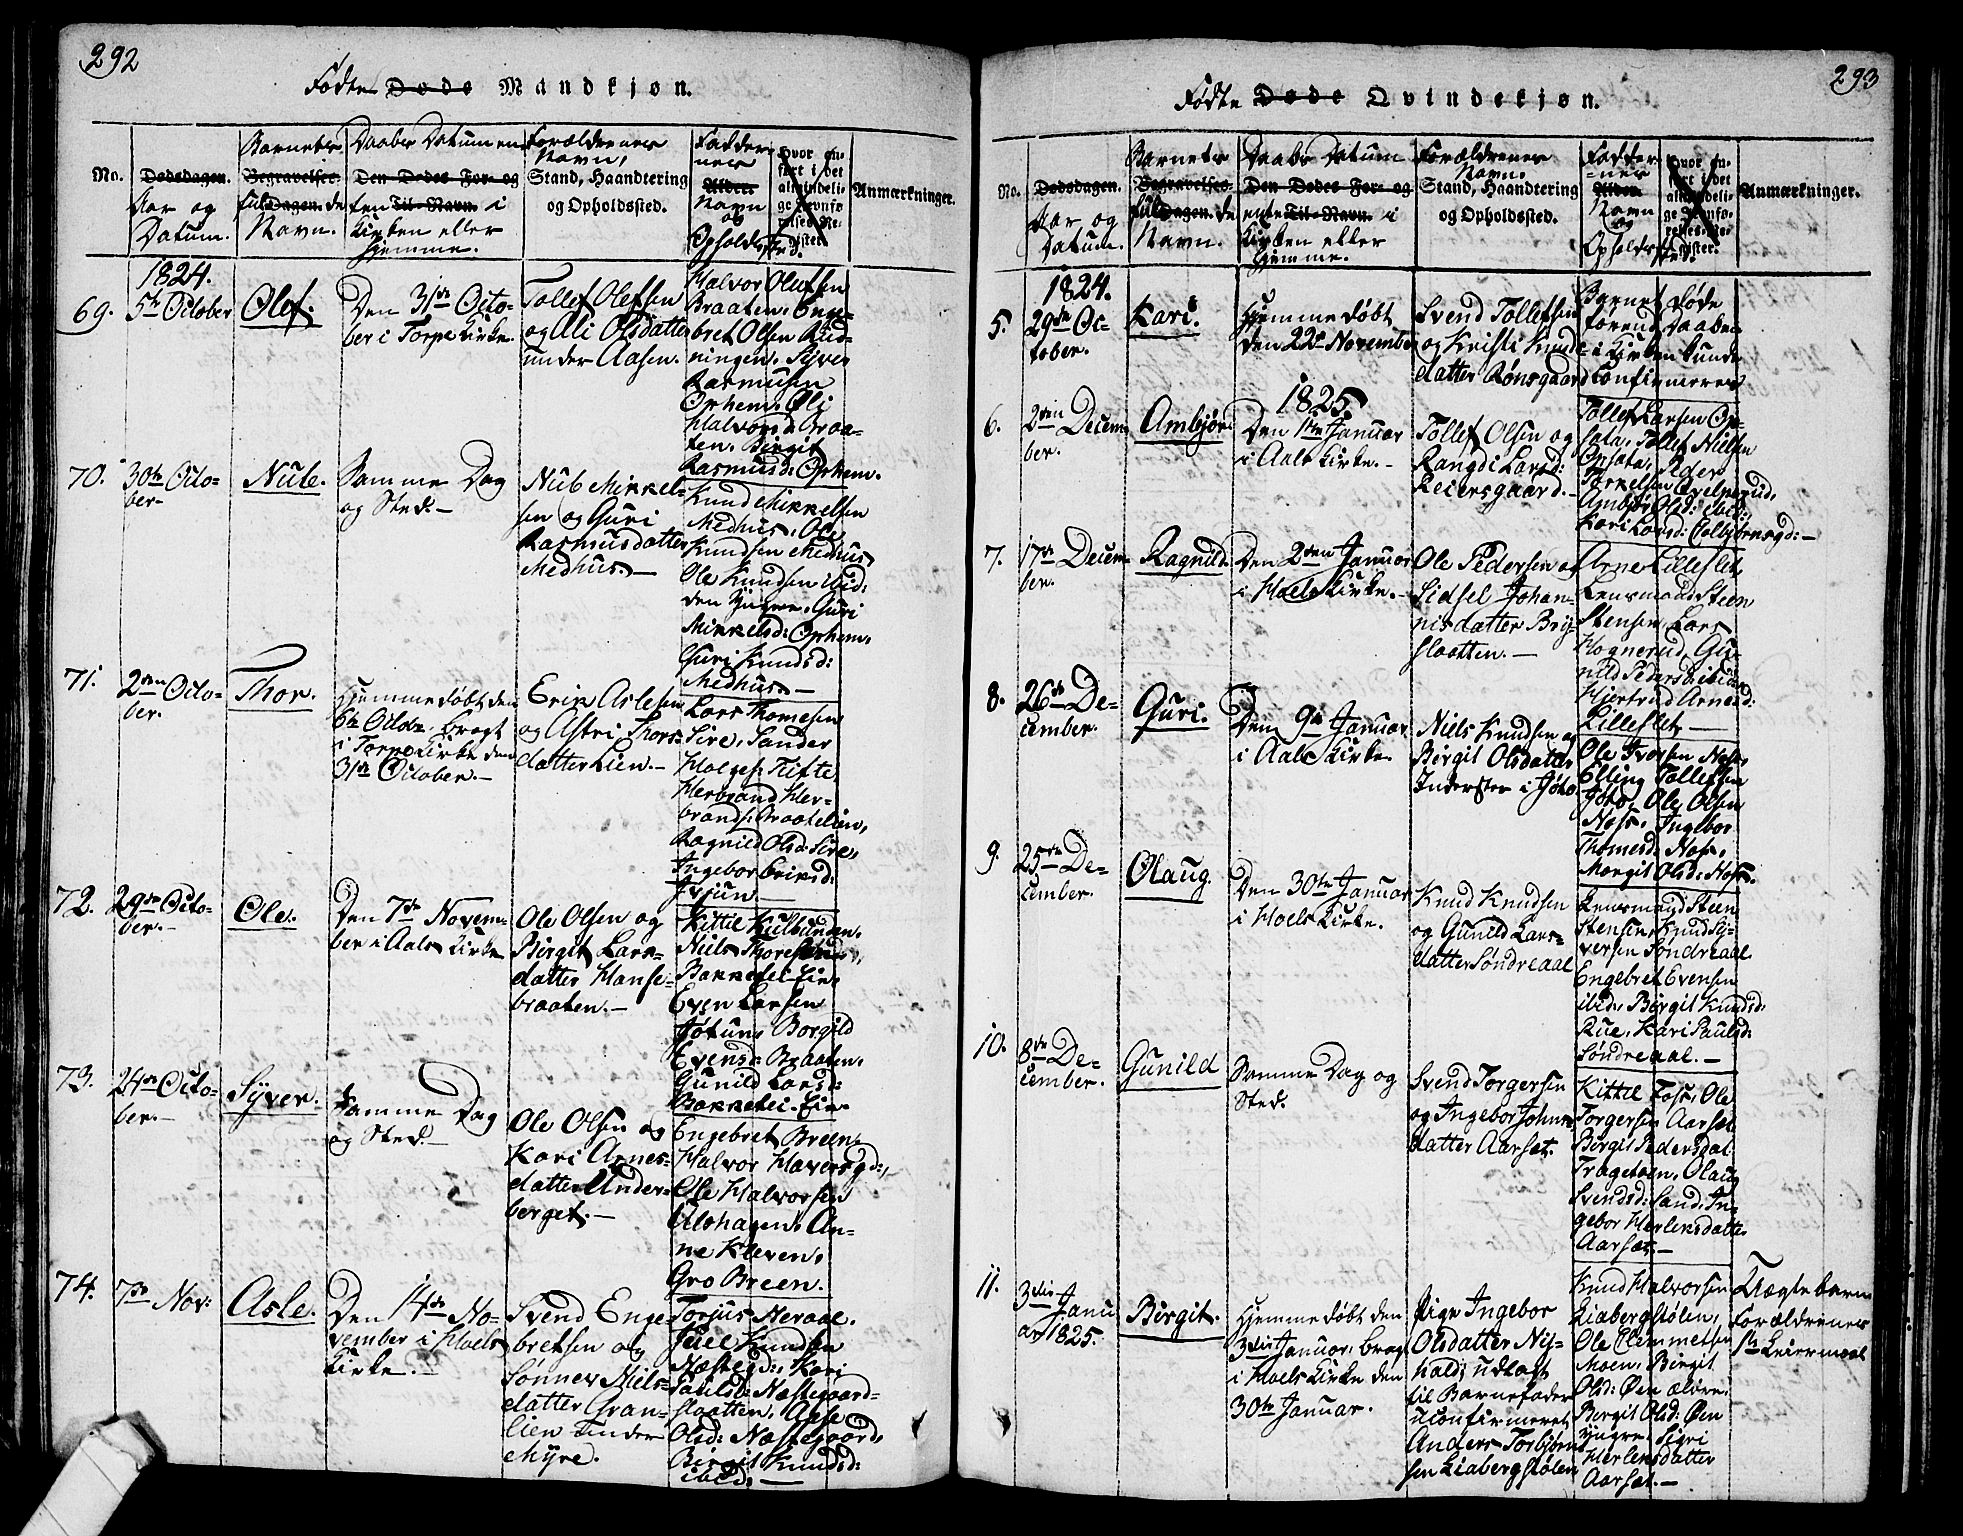 292
Fødte Døde Mandkjøn.
No.
Dødsdagen.
Aar og
Datum.
Barnets
Begravelses
fulde
dagen.
Navn.
Daabs Datum en
Den Dødes For- og
ten Til-Navn. i
Kirken eller
hjemme.
Forældrenes
Navn,
Stand, Haandtering
og Opholdssted.
Fadder-
nes
Alder.
Navn
og
Opholdssted.
Anmærkninger.
1824.
69.
5te October
Olef.
Den 31te Octo-
ber i Torpe Kirke.
Tollef Olefsen
og Ali Olsdatter
under Aasen.
Halvor Olefsen
Braaten, Enge-
bret Olsen Rud-
ningen, Syver
Rasmusen
Ophem, Oli
Halvorsd: Braa-
ten, Birgit
Rasmusd: Ophem.
70.
30te Octo-
ber.
Nub.
Samme Dag
og Sted.
Nub Mikkel-
sen og Guri
Rasmusdatter
Medhus.
Knud Mikkelsen
Medhus, Ole
Knudsen Medhus,
Ole Knudsen
den Yngre, Guri
Mikkelsd: Ophem,
Guri Knudsd:
Medhus.
71.
2den Octo-
ber.
Thor.
Hjemmedøbt den
6te Octbr, bragt
i Torpe Kirke den
31te October.
Erik Aslesen
og Astri Thors-
datter Lien.
Lars Thomesen
Sire, Sander
Holgef: Tufte
Herbrand Her-
brands: Braatelien,
Ragnild Olsd: Sire,
Ingebor Eriksd:
72.
29de Octo-
ber.
Ole.
Den 7de Novem-
ber i Aals Kirke
Ole Olsen og
Birgit Lars-
datter Hanse-
braaten.
Kittil
Niels
Bakketei
Even Larsen
Jøtun, Borgild
Evensd: Braaten,
Gunild Larsd:
Bakketei
73.
24de Octo-
ber.
Syver.
Samme Dag
og Sted.
Ole Olsen og
Kari Arnes-
datter Under-
berget.
Engebret Breen,
Halvor Haversgd:,
Ole Halvorsen
Ulshagen, An-
ne Kleven,
Gro Breen.
74.
7de Nov:
Asle.
Den 14de No-
vember i Hoels
Kirke.
Svend Enge-
bretsen og
Sønnev Niels-
datter Gran-
lien under
Myre.
Torjus Heraae.
Juel Knudsen
Næstegd:, Kari
Paulsd: Næstegaard-
slaatten, Aase
Olsd: Næstegaard,
Birgit Knudsd:
ibid:
293
Fødte Døde Qvindekjøn.
No.
Dødsdagen.
Aar og
Datum.
Barnets
Begravelses
fulde
dagen.
Navn.
Daabs Datum
Den Dødes For- og
enten Til-Navn. i
Kirken eller
hjemme.
Forældrenes
Navn.
Stand, Haandtering
og Opholdssted.
Fadder-
nes
Alder.
Navn
og
Opholdssted.
Anmærkninger.
1824.
5.
29de Oc-
tober.
Kari.
Hjemmedøbt
den 22de November
Svend Tollefsen
og Kristi Knuds-
datter Rønsgaard
Barnet døde
førend Daaben
i Kirken kunde
confirmeres
6.
2den Decem-
ber.
Ambjør.
1825.
Den 1ste Januar
i Aals Kirke.
Tollef Olsen og
Rangdi Larsd:
Reiersgaard.
Tollef Larsen Op-
sata, Tollef Nielsen
Opsata, Peder
Torkelsen
Ambjør Olsd: ibid:,
Kari Larsd: Tolbjørnsgd:
7.
17de Decem-
ber.
Ragnild.
Den 2den Januar
i Hoels Kirke.
Ole Pedersen og
Sidsel Johan-
nisdatter Bry-
slaatten.
Arne Lilleslet
Lensmand Steen
Stensen, Lars
Hognerud, Gu-
nild Pedersd: ibid:
Hjertrud Arnesd:
Lilleslet
8.
26de De-
cember.
Guri.
Den 9de Januar
i Aals Kirke.
Niels Knudsen og
Birgit Olsdatter
Inderster i Jøto
Ole Ivarsen Noss,
Elling Tollefsen
Jøto, Ole Olsen
Noss, Ingebor
Thomesd: Noss,
Margit Olsd: Noss.
9.
25de De-
cember.
Olaug.
Den 30te Januar
i Hoels Kirke.
Knud Knudsen
og Gunild Lars-
datter Søndreaal
Lensmand Steen
Stensen, Knud Sy-
versen Søndreaal
Engebret Evensen
ibid:, Birgit Knudsd:
Rue, Kari Paulsd:
Søndreaal.
10.
8de De-
cember.
Gunild
Samme Dag og
Sted.
Svend Torgersen
og Ingebor Johns-
datter Aarset.
Kittil Foss, Ole
Torgersen Aarset
Birgit Pedersdat.
Trageteen, Olaug
Svendsd: Sand, In-
gebor Herlensdatter
Aarset.
11.
3die Janu-
ar 1825.
Birgit.
Hjemmedøbt den
3die Januar, bragt
i Hoels Kirke den
30te Januar.
Pige Ingebor
Olsdatter Ny-
hald; udlagt
til Barnefader
uconfirmeret
Anders Torbjørn-
sen Liabergstølen
Knud Halvorsen
Liabergstølen,
Ole Clemmetsen
Moen, Birgit
Olsd: Øen ældre,
Bergit Olsd: Øen
yngre, Sigri
Herlensdatter
Aarset.
Uægte barn
Forældrenes
1ste Leiermaal